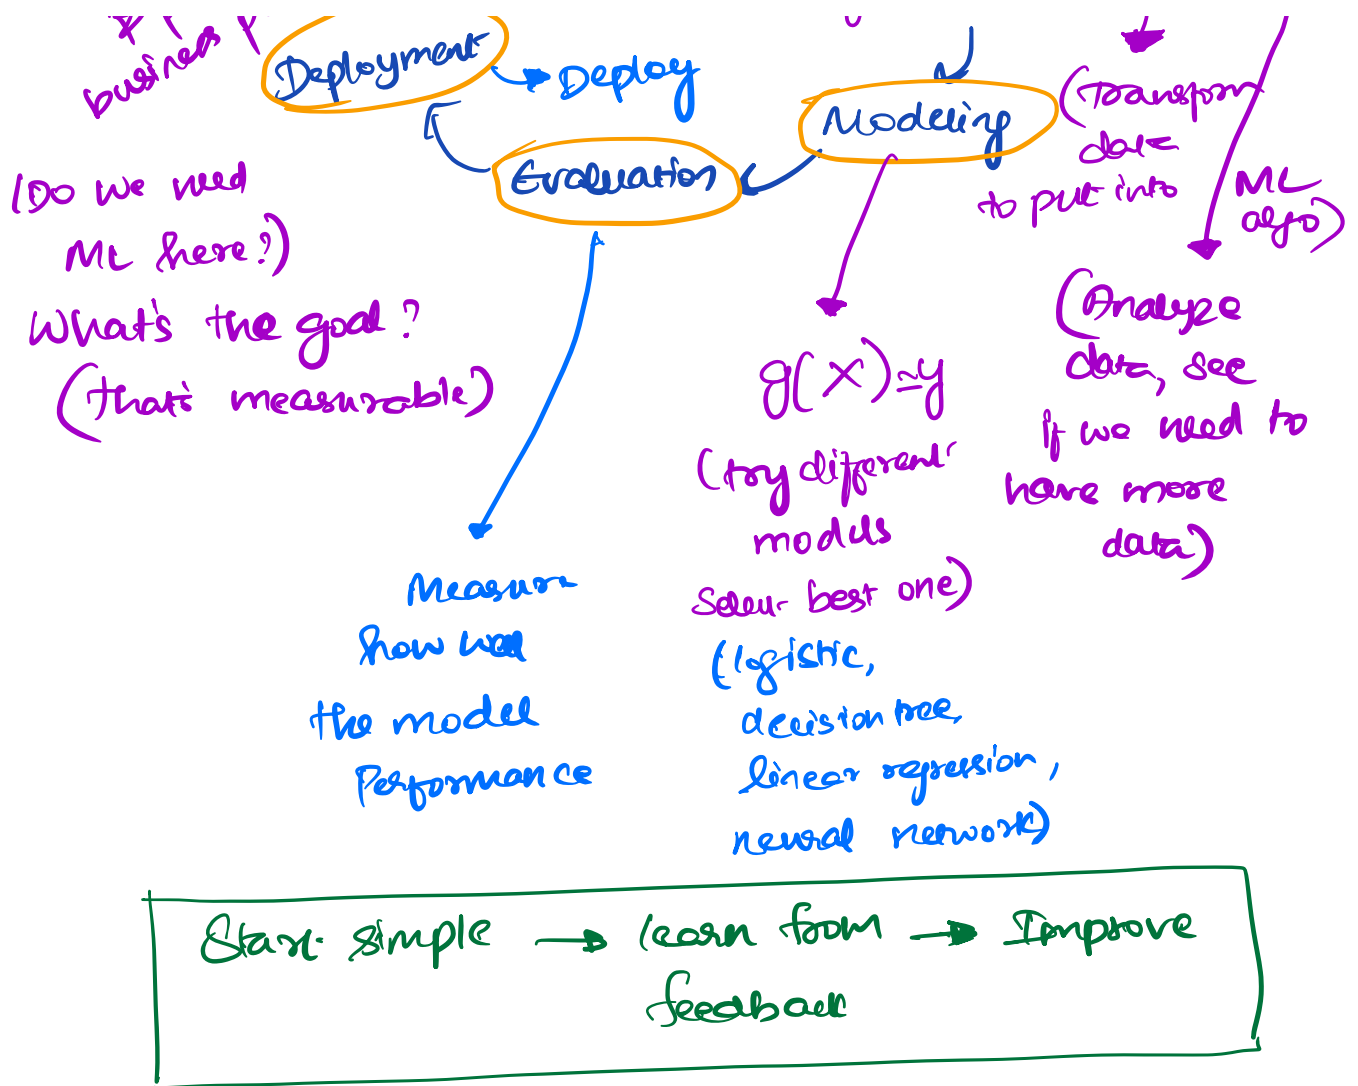 business
Deployment
Deploy
Modeling
Evaluation
(Transform
data
to put into
ML
algo)
(Do we need
ML here?)
What's the goal?
(that's measurable)
g(X)≃y
(try different
models
Select best one)
(logistic,
decision tree,
linear regression,
neural network)
(Analyze
data, see
if we need to
have more
data)
Measure
how well
the model
Performance
Start simple → learn from → Improve
feedback